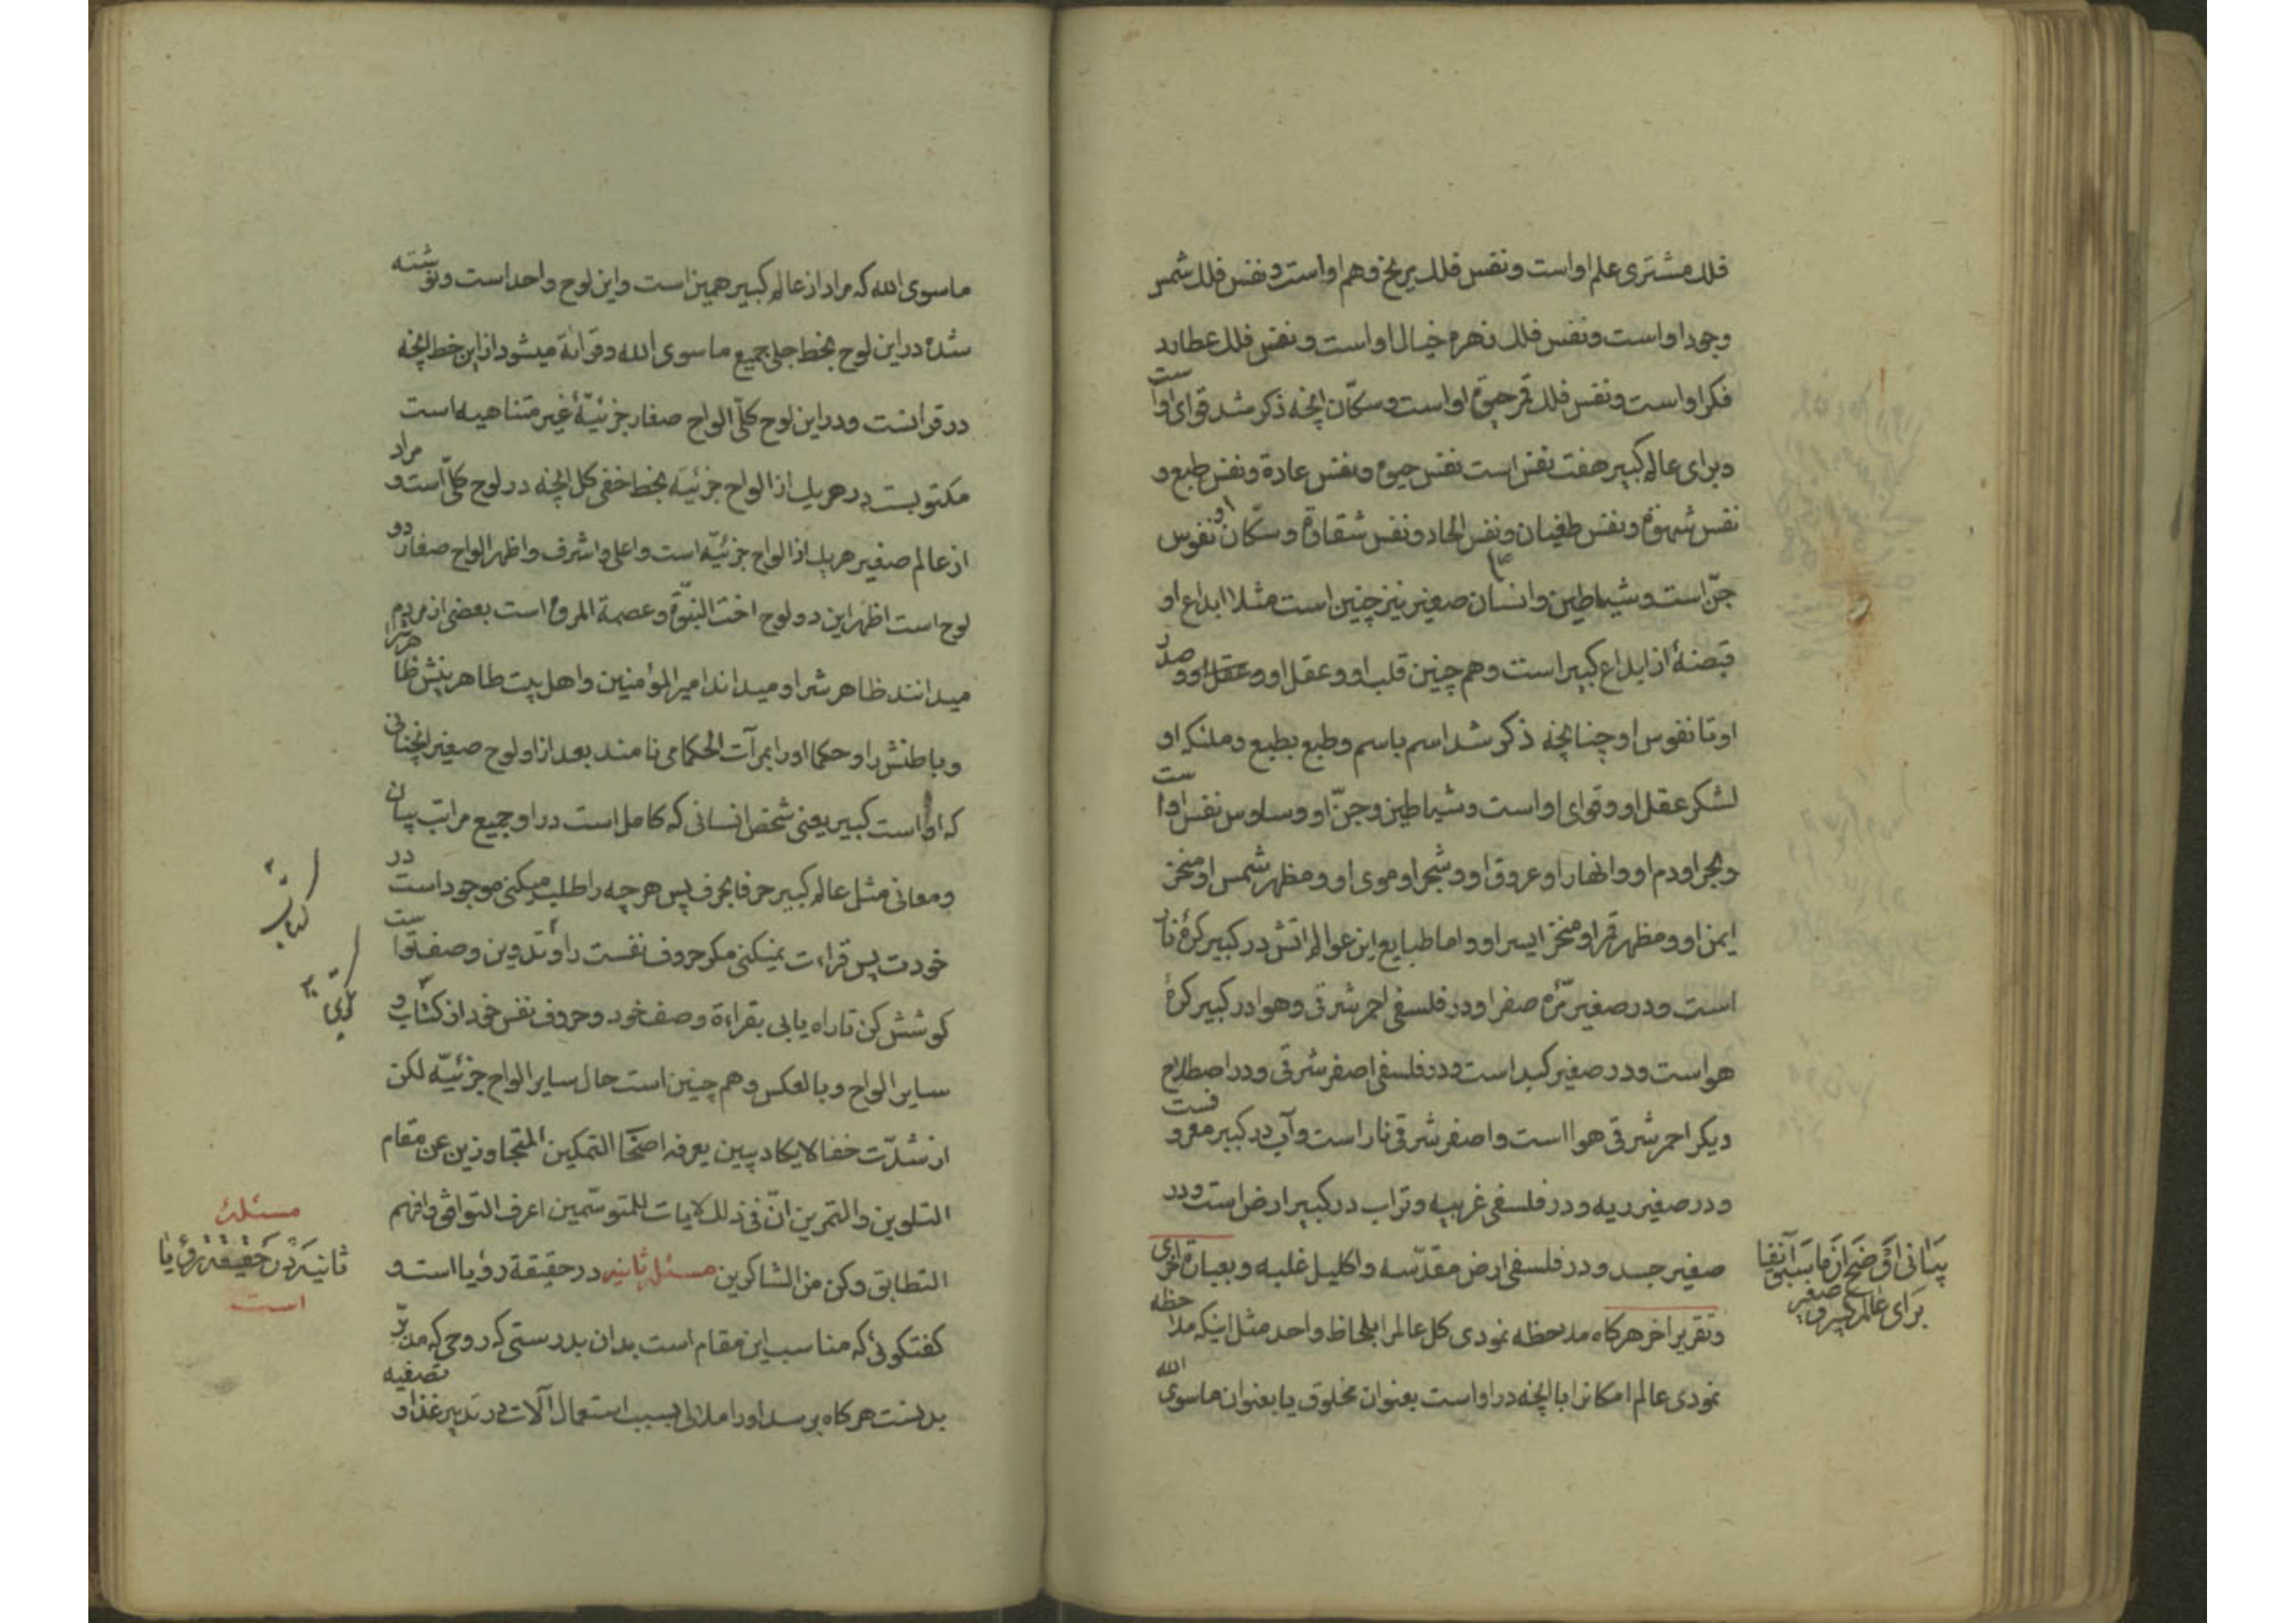 فلك مشتری علم او است و نفس فلك مریخ وهم او است و نفس فلك شمس
وجود او است و نفس فلك زهره خیال او است و نفس فلك عطارد
فکر او است و نفس فلك قمر حیوة او است و سکّان انچه ذکر شد قوای او است
و برای عالم کبیر هفت نفس است نفس حیوة و نفس عادة و نفس طبع و
نفس شهوة و نفس طغیان و نفس الحاد و نفس شقاوة و سکّان او نفوس
جنّ است و شیاطین و انسان صغیر نیز چنین است مثلا ابداع او
قبضهٔ از ابداع کبیر است و هم چنین قلب او و عقل او و عقل او و صدر
او تا نفوس او چنانچه ذکر شد اسم باسم و طبع بطبع و ملئکه او
لشکر عقل او و قوای او است و شیاطین و جنّ او وساوس نفس او است
و بحر او دم او و انهار او عروق او و شجر او موی او و مظهر شمس او منخر
ایمن او و مظهر قمر او منخر ایسر او و اما طبایع این عوالم اتش در کبیر کرهٔ نار
است و در صغیر مرّه صفرا و در فلسفی احمر شرقی و هوا در کبیر کرهٔ
هو است و در صغیر کبد است و در فلسفی اصفر شرقی و در اصطلاح
دیکر احمر شرقی هوا است و اصفر شرقی نار است و آب در کبیر معروفست
و در صغیر ریه و در فلسفی غربیه و تراب در کبیر ارض است و در
صغیر جسد و در فلسفی ارض مقدّسه و اکلیل غلبه و بعبارة اخری
و تقریر اخر هرکاه ملاحظه نمودی کل عالمرا بلحاظ واحد مثل اینکه ملاحظه
نمودی عالم امکانرا با انچه در او است بعنوان مخلوق یا بعنوان ماسوی الله
بیانی اوضح از ما سبق آنفا
برای عالم کبیر و صغیر
ماسوی الله که مراد از عالم کبیر همین است و این لوح واحد است و نوشته
شده در این لوح بخط جلی جمیع ماسوی الله و قرائة میشود از این خط انچه
در قرانست و در این لوح کلّی الواح صغار جزئیّهٔ غیر متناهیه است
مکتوبست در هریك از الواح جزئیّه بخط خفی کل انچه در لوح کلّی است و مراد
از عالم صغیر هریك از الواح جزئیّه است و اعلی و اشرف و اظهر الواح صغار دو
لوح است اظهر این دو لوح اخت النبوّة و عصمة المروة است بعضی از مردم
میدانند ظاهرش را و میداند امیر المؤمنین و اهل بیت طاهرینش ظاهرش را
و باطنش را و حکما او را بمرآت الحکما می نامند بعد از او لوح صغیر انچنانی
که او است کبیر یعنی شخص انسانی که کامل است در او جمیع مراتب بیان
و معانی مثل عالم کبیر حرفا بحرف پس هرچه را طلب میکنی موجود است در
خودت پس قراءت نمیکنی مکر حروف نفست را و تدوین وصف تو است
کوشش کن تا راه یابی بقراءة وصف خود و حروف نفس خود از کتاب و
سایر الواح و بالعکس و هم چنین است حال سایر الواح جزئیّه لکن
از شدّت خفا لایکاد یبین یعرفه اصحاب التمکین المتجاوزین عن مقام
التلوین و التمرین انّ فی ذلك لایات للمتوسّمین اعرف التوافق وافهم
التطابق وکن من الشاکرین مسئله ثانیه در حقیقة رؤیا است و
کفتکوئی که مناسب این مقام است بدان بدرستی که روحی که مدبّر
بدنست هرکاه برسد او را ملالی بسبب استعمال آلات در تدبیر غذا و تصفیه
کتاب
مسئلهٔ
ثانیه در حقیقة رؤیا
است